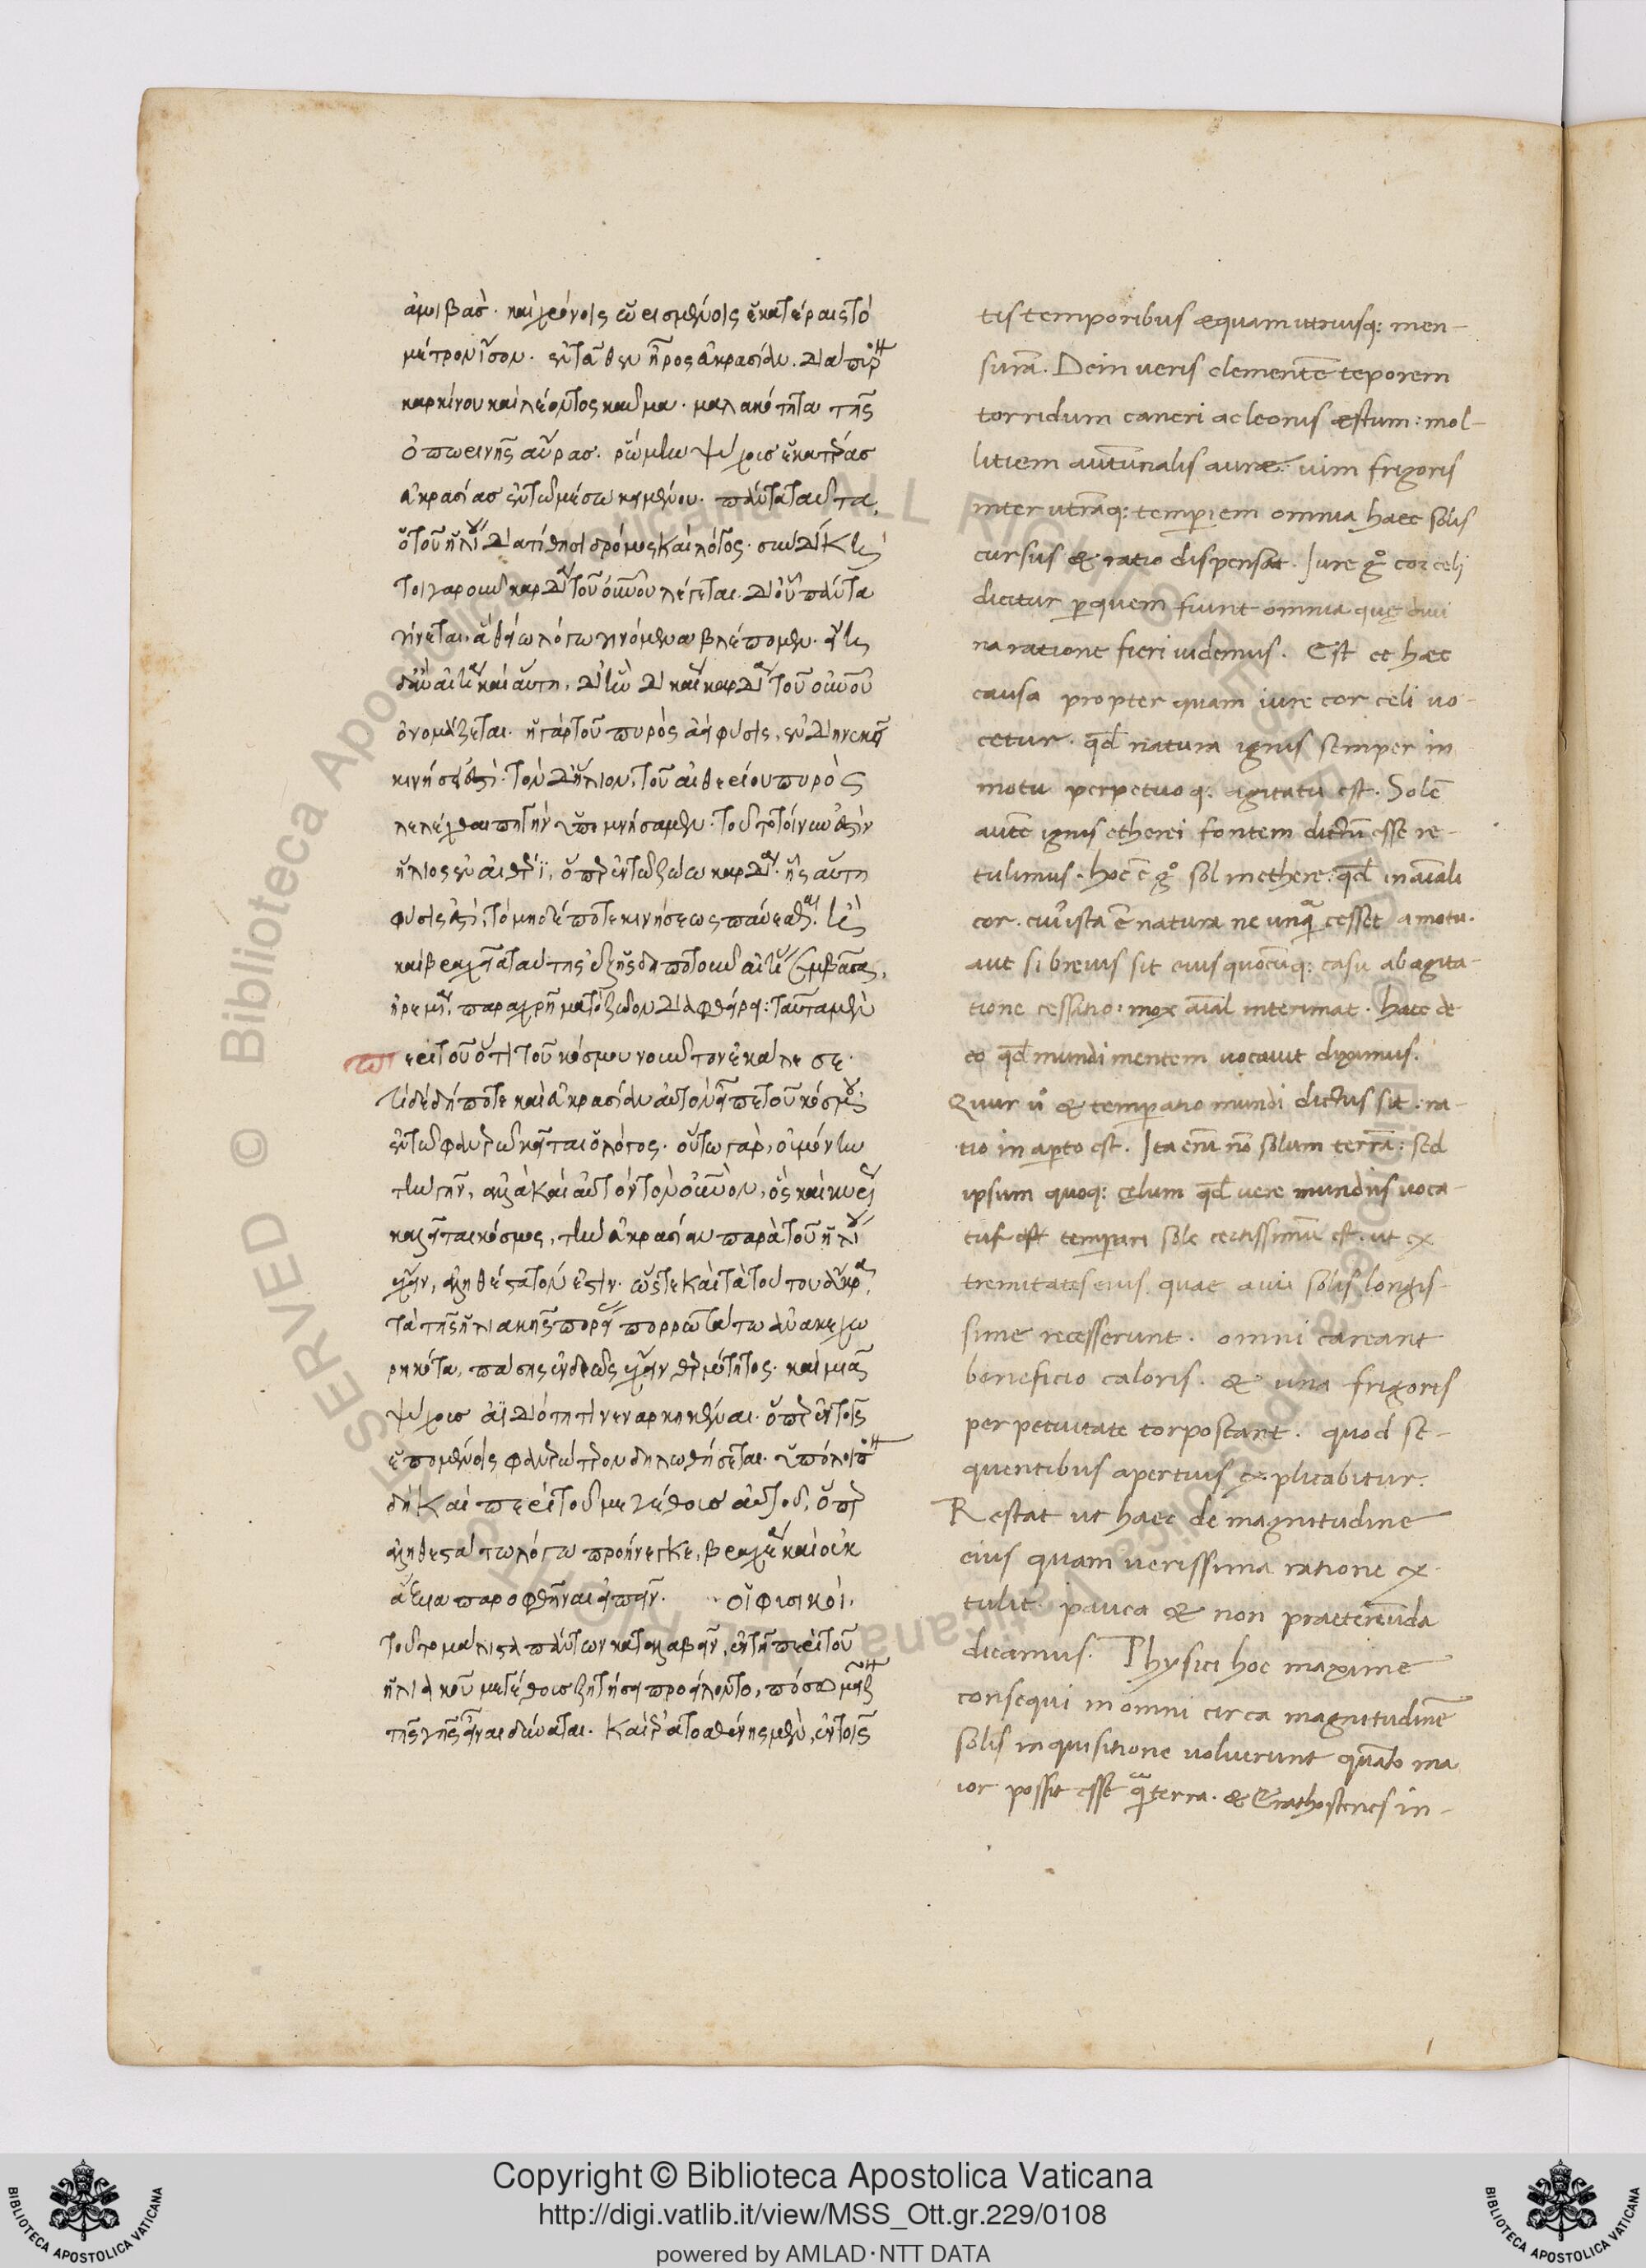 ἀμοιβάς. καὶ χρόνοις ὡρισμένοις ἑκατέραις τὸ
μέτρον ἴσον.
καρκίνου καὶ λέοντος καῦμα. μαλακότητα τῆς
ὀπωρινῆς αὔρας. ῥώμην ψύχους ἑκατέρας
κράσεως ἐν τῷ μέσῳ κειμένου. πάντα ταῦτα,
ὁ τοῦ ἡλίου διατίθησι δρόμος καὶ λόγος.
τοιγαροῦν καρδία τοῦ οὐρανοῦ λέγεται. δι' οὗ πάντα
γίνεται. ἃ θείῳ λόγῳ γινόμενα βλέπομεν.
αἰτία καὶ αὕτη, δι' ἣν δικαίως καρδία τοῦ οὐρανοῦ
ὀνομάζεται. ἡ γὰρ τοῦ πυρὸς ἀεὶ φύσις, ἐν διηνεκεῖ
κινήσει ἐστί. τὸν δ' ἥλιον, τοῦ αἰθερίου πυρὸς
λελέχθαι πηγὴν ὑπεμνήσαμεν. τοῦτο τοίνυν ἐστὶν
ἥλιος ἐν αἰθέρι, ὅπερ ἐν τῷ ζώῳ καρδία. ἧς αὕτη
φύσις ἐστί, τὸ μηδέποτε κινήσεως παύεσθαι.
καὶ βραχεῖα ταύτης ἐξ ἧς δήποτ' οὖν αἰτίας συμβᾶσα,
ἠρεμία, παραχρῆμα τὸ ζῶον διαφθείρει: ταῦτα μὲν
περὶ τοῦ ὅτι τοῦ κόσμου νοῦν τὸν ἐκάλεσε.
τί δέ δήποτε καὶ κρᾶσιν αὐτὸν εἶπε τοῦ κόσμου.
ἐν τῷ φανερῷ κεῖται ὁ λόγος. οὕτω γὰρ, οὐ μόνην
τὴν γῆν, ἀλλὰ καὶ αὐτὸν τὸν οὐρανὸν, ὃς καὶ κυρίως
καλεῖται κόσμος, τὴν κρᾶσιν παρὰ τοῦ ἡλίου
ἔχειν, ἀληθέστατόν ἐστιν. ὥστε καὶ τὰ τούτου ἄκρα,
τὰ τῆς ἡλιακῆς πορείας πορρωτάτω ἀνακεχω
ρηκότα, πάσης ἐνδεῶς ἔχειν θερμότητος. καὶ μιᾷ
ψύχους ἀϊδιότητι νεναρκηκέναι. ὅπερ ἐν τοῖς
ἑπομένοις φανερώτερον δηλωθήσεται. ὑπόλοιπον
δὴ καὶ περὶ τοῦ μεγέθους αὐτοῦ, ὅπερ
ἀληθεστάτῳ λόγῳ προήνεγκε, βραχέα καὶ οὐκ
ἄξια παροφθῆναι εἰπεῖν. οἱ φυσικοὶ,
τοῦτο μάλιστα πάντων καταλαβεῖν, ἐν τῇ περὶ τοῦ
ἡλιακοῦ μεγέθους ζητήσει προείλοντο, πόσῳ μεῖζον
τῆς γῆς εἶναι δύναται. καὶ ἐρατοσθένης μὲν, ἐν τοῖς
tis temporibus æquam utriusq: men-
surā. Dein veris clementē teporem
torridum cancri ac leonis æstum: mol-
litiem autūnalis auræ. uim frigoris
inter utrāq: temperiem omnia haec solis
cursus & ratio dispensat. Iure gͦ cor celi
dicitur per quem fiunt omnia quę diui
na ratione fieri uidemus. Est et hæc
causa propter quam iure cor celi uo-
cetur. qd̄ natura ignis semper in
motu perpetuoq: agitatu est. Solē
autē ignis etherei fontem dictū esse re-
tulimus. hoc ē gͦ sol in ethere: qd̄ in aīali
cor. cuiꝰ ista ē natura ne unq̄ cesset a motu.
aut si breuis sit eius quocūq: casu ab agita-
tione cessatio: mox aīal interimat. Haec de
eo qd̄ mundi mentem uocauit diximus.
Quur uͦ & temperatio mundi dictus sit. ra-
tio in aperto est. Ita enī nō solum terrā: sed
ipsum quoq: cęlum qd̄ uere mundus uoca-
tur temperari sole certissimū est. ut ex
tremitates eius. quae a uia solis longis-
sime recesserunt. omni careant
beneficio caloris. & una frigoris
perpetuitate torpescant. quod se-
quentibus apertius explicabitur.
Restat ut haec de magnitudine
eius quam uerissima ratione ex-
tulit. pauca & non praetereūda
dicamus. Physici hoc maxime
consequi in omni circa magnitudinē
solis inquisitione uoluerunt quāto ma
ior possit esse q̄ terra. & Erathostenes in-
Copyright © Biblioteca Apostolica Vaticana
http://digi.vatlib.it/view/MSS_Ott.gr.229/0108
powered by AMLAD·NTT DATA